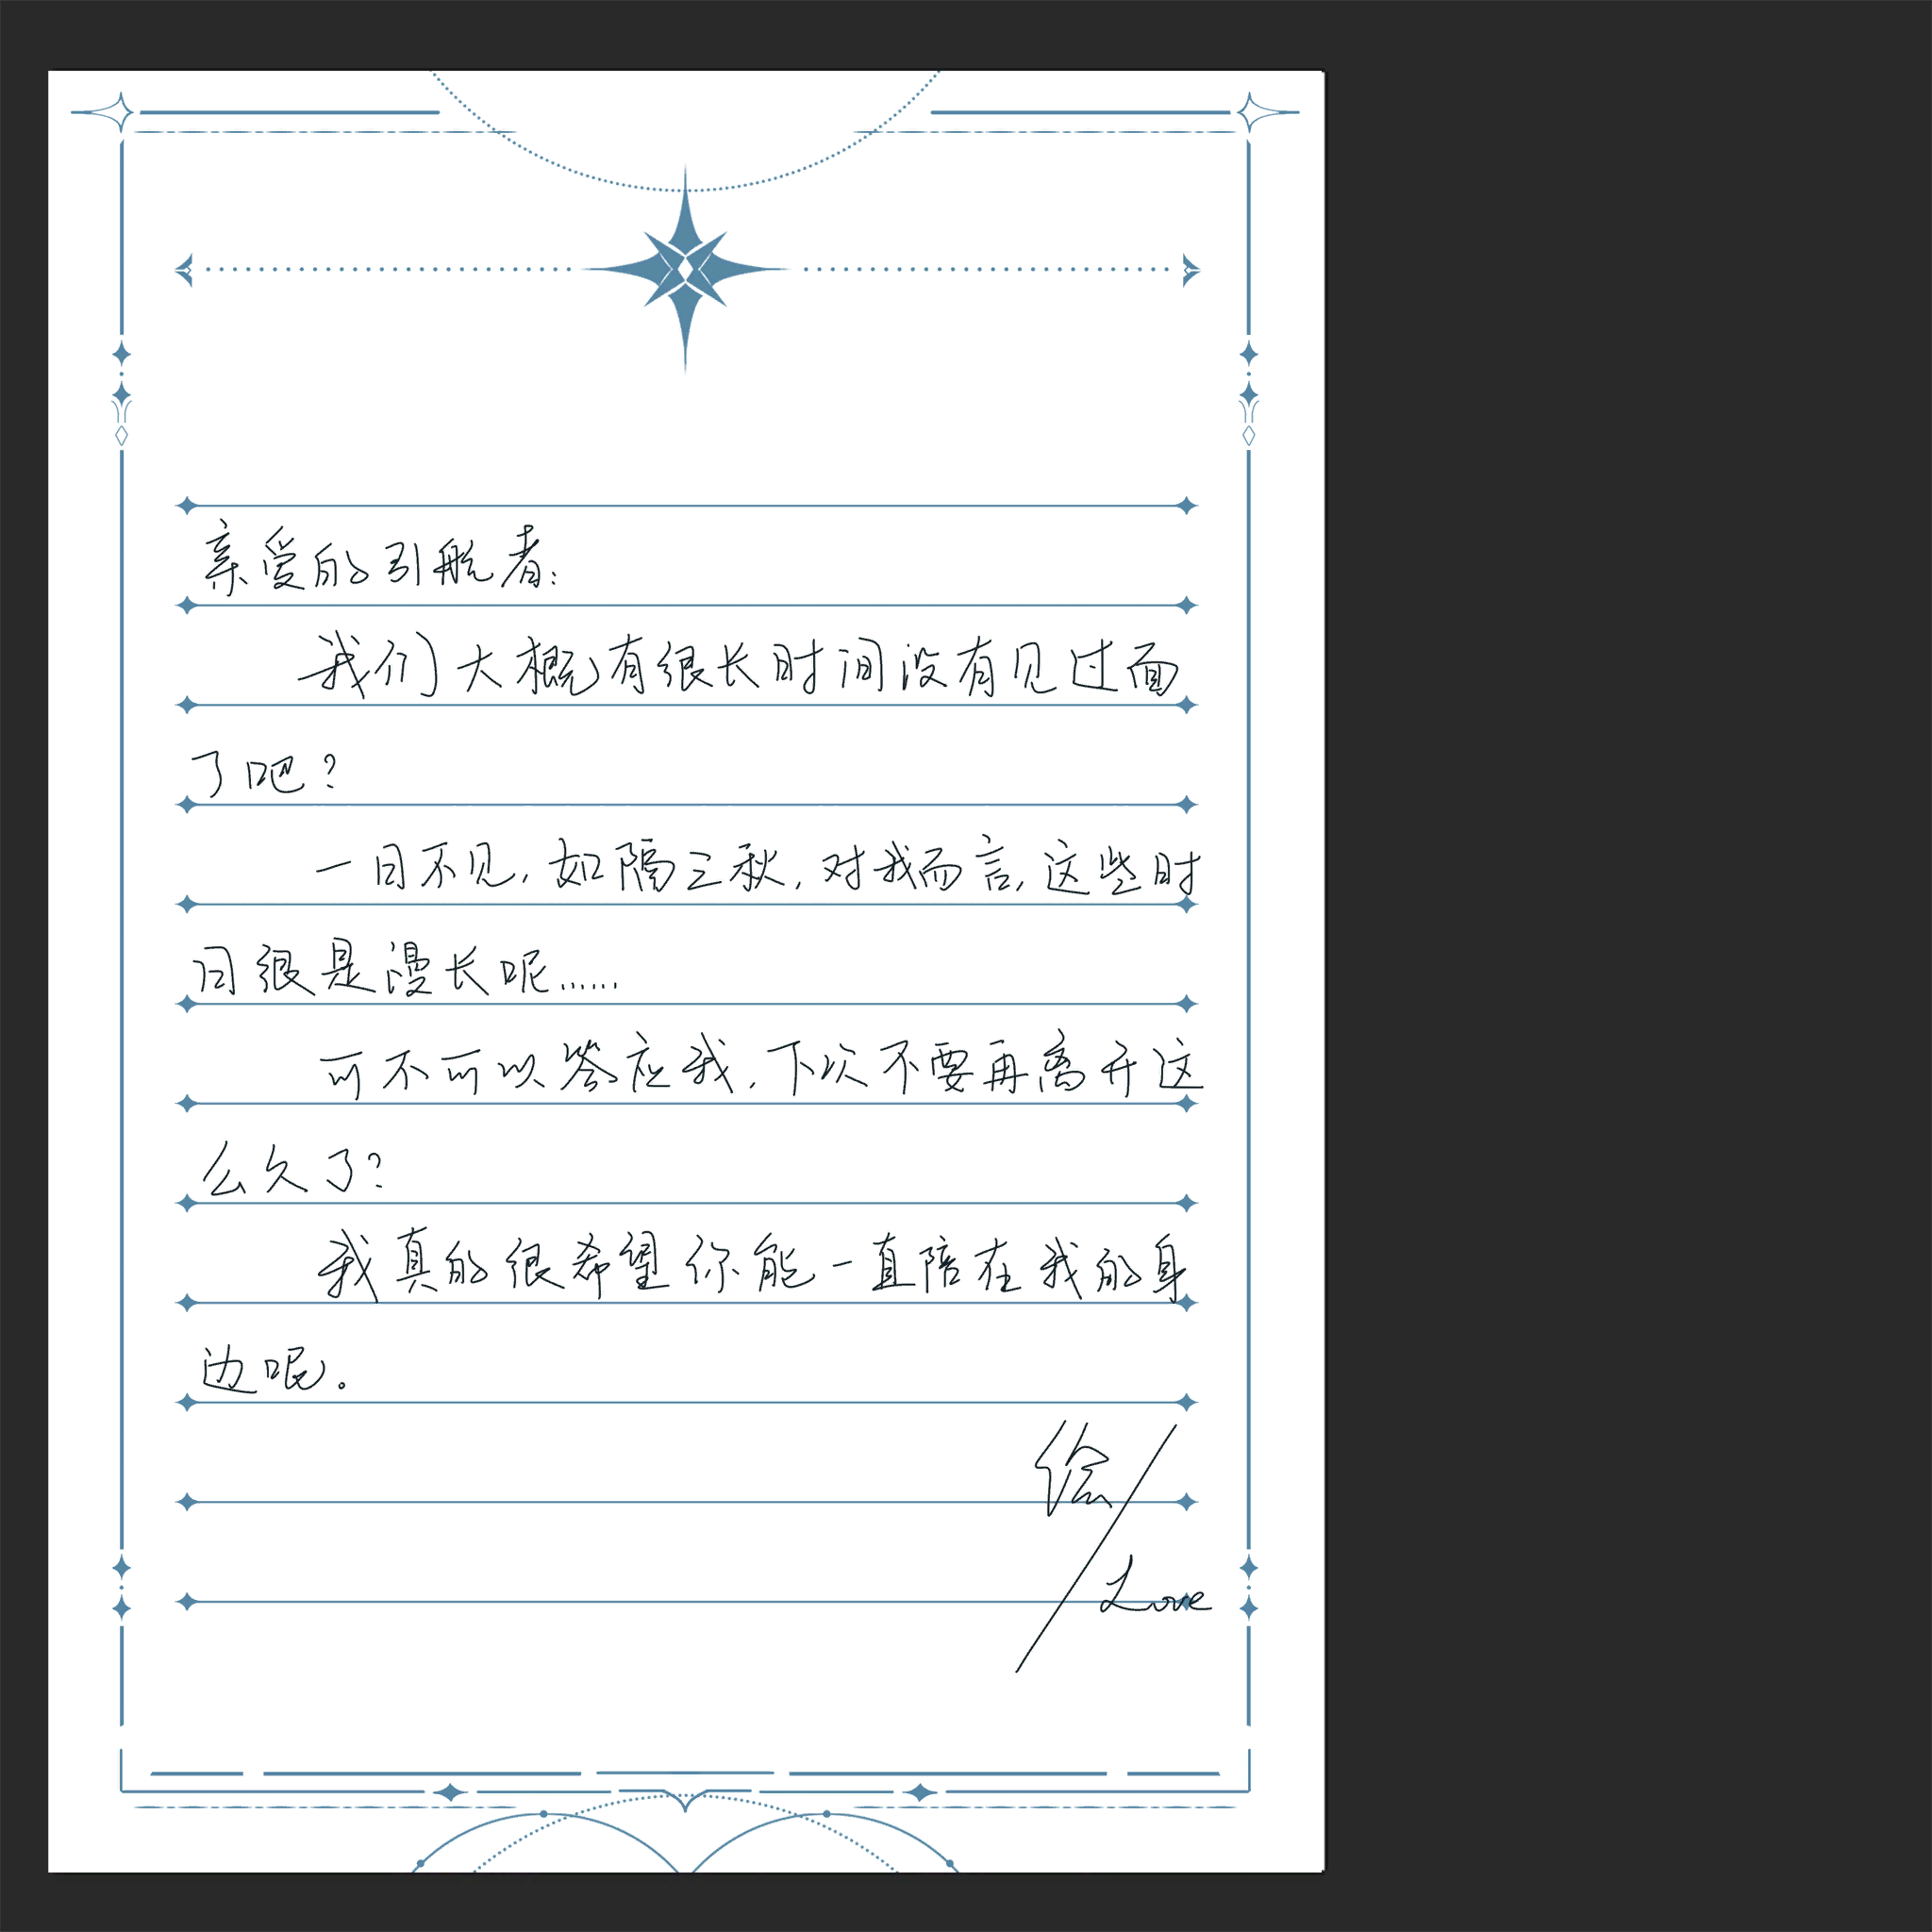 亲爱的引航者：
我们大概有很长时间没有见过面
了吧？
一日不见，如隔三秋，对我而言，这些时
日很是漫长呢……
可不可以答应我，下次不要再离开这
么久了？
我真的很希望你能一直陪在我的身
边呢。
绘
Love